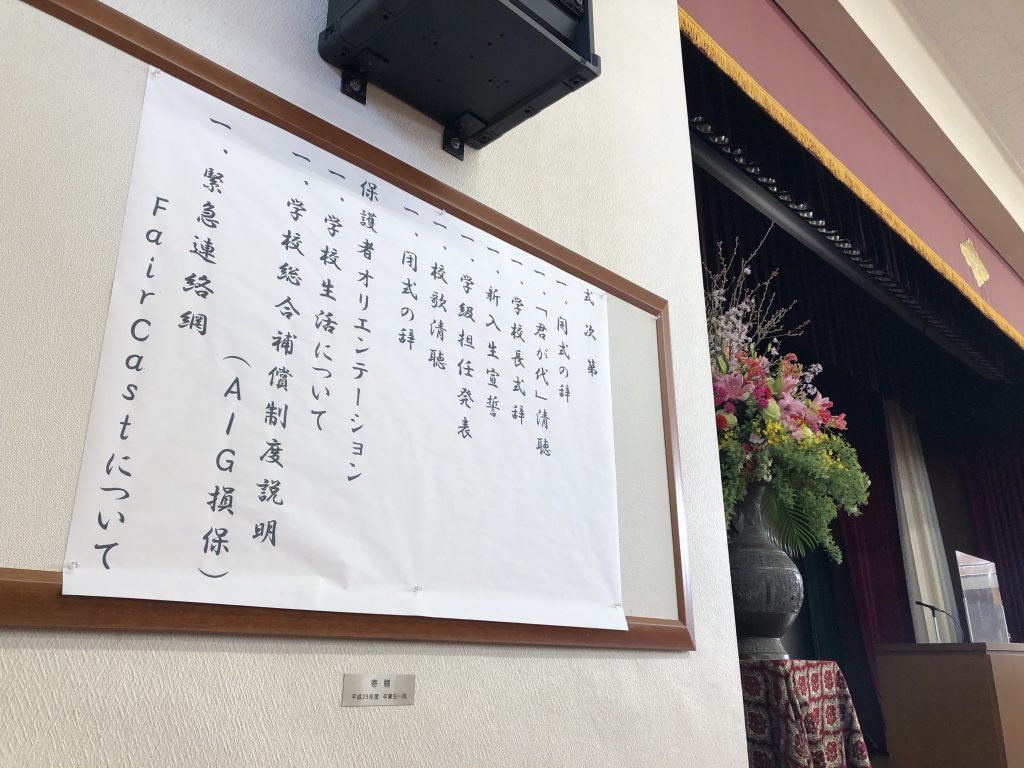 式次第
一、開式の辞
一、「君が代」清聴
一、学校長式辞
一、新入生宣誓
一、学級担任発表
一、校歌清聴
一、閉式の辞
保護者オリエンテーション
一、学校生活について
一、学校総合補償制度説明
（AIG損保）
一、緊急連絡網
FairCastについて
寄贈
平成25年度 卒業生一同